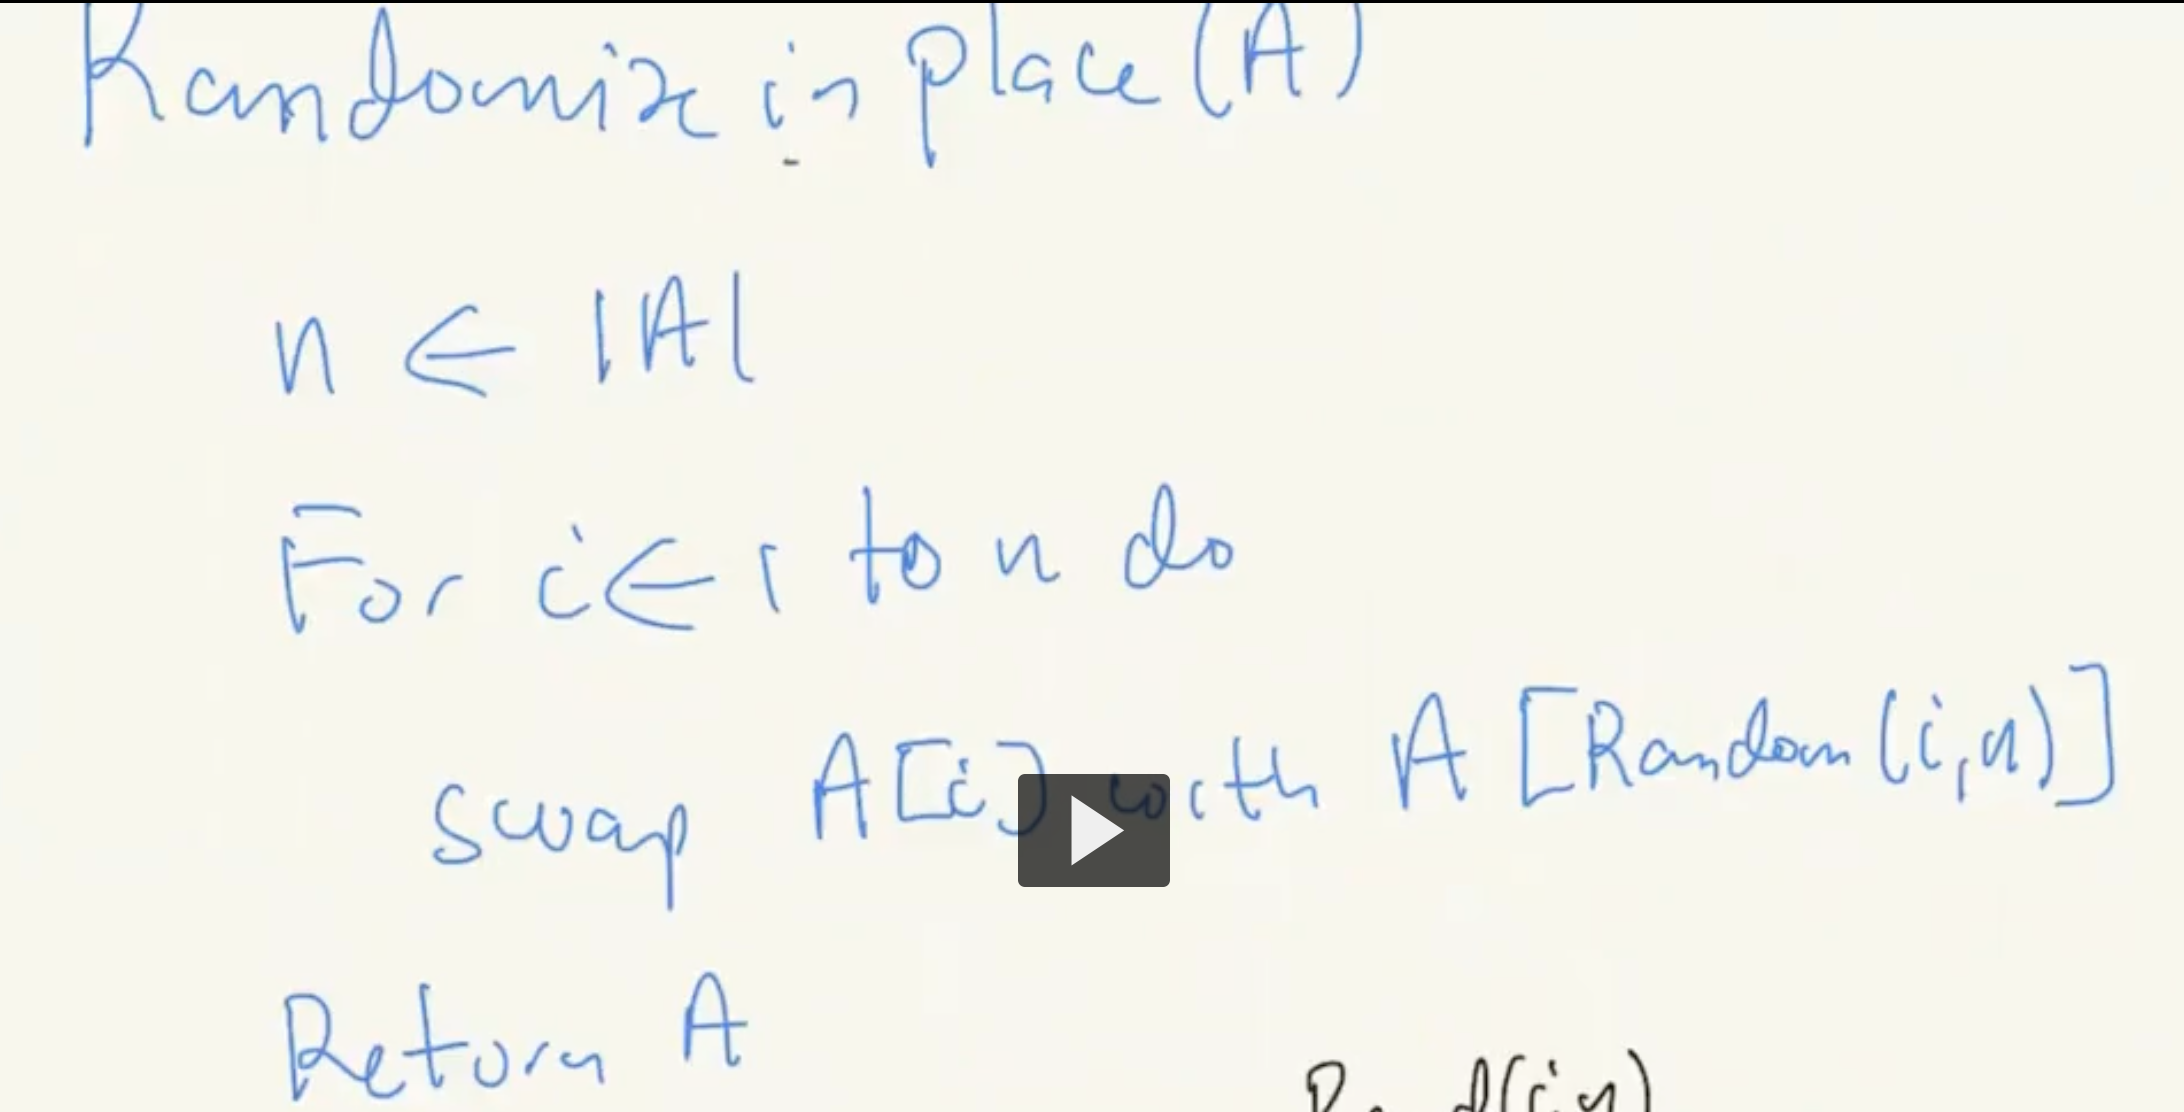 Randomize in place (A)
n ← |A|
For i ← 1 to n do
swap A[i] with A [Random(i,n)]
Return A